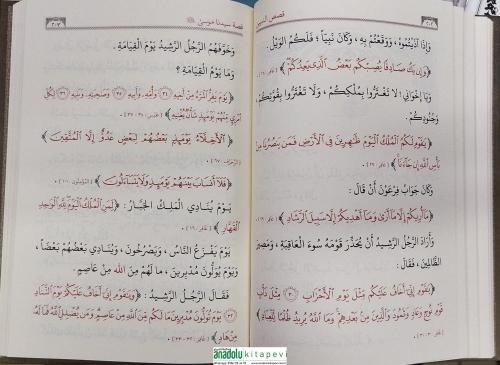 ٢٠٢ قصص النبيين
وَإِذَا آذَيْتُمُوهُ، وَوَقَعْتُمْ بِهِ، وَكَانَ نَبِيّاً؛ فَلَكُمُ الْوَيْلُ.
﴿وَإِن يَكُ صَادِقًا يُصِبْكُم بَعْضُ الَّذِى يَعِدُكُمْ﴾
وَيَا إِخْوَانِي! لَا تَغْتَرُّوا بِمُلْكِكُمْ، وَلَا تَغْتَرُّوا بِقُوَّتِكُمْ
وَجُنُودِكُمْ.
﴿يَٰقَوْمِ لَكُمُ الْمُلْكُ الْيَوْمَ ظَٰهِرِينَ فِى الْأَرْضِ فَمَن يَنصُرُنَا مِنۢ
بَأْسِ اللَّهِ إِن جَآءَنَا﴾
وَكَانَ جَوَابُ فِرْعَوْنَ أَنْ قَالَ:
﴿مَآ أُرِيكُمْ إِلَّا مَآ أَرَىٰ وَمَآ أَهْدِيكُمْ إِلَّا سَبِيلَ الرَّشَادِ﴾
وَأَرَادَ الرَّجُلُ الرَّشِيدُ أَنْ يُحَذِّرَ قَوْمَهُ سُوءَ الْعَاقِبَةِ، وَمَصِيرَ
الظَّالِمِينَ، فَقَالَ:
﴿يَٰقَوْمِ إِنِّىٓ أَخَافُ عَلَيْكُم مِّثْلَ يَوْمِ الْأَحْزَابِ ٣٠ مِثْلَ دَأْبِ
قَوْمِ نُوحٍ وَعَادٍ وَثَمُودَ وَالَّذِينَ مِنۢ بَعْدِهِمْ وَمَا اللَّهُ يُرِيدُ ظُلْمًا لِّلْعِبَادِ﴾
قصة سيدنا موسى ٢٠٣
وَخَوَّفَهُمُ الرَّجُلُ الرَّشِيدُ يَوْمَ الْقِيَامَةِ.
وَمَا يَوْمُ الْقِيَامَةِ؟
﴿يَوْمَ يَفِرُّ الْمَرْءُ مِنْ أَخِيهِ ٣٤ وَأُمِّهِ وَأَبِيهِ ٣٥ وَصَٰحِبَتِهِ وَبَنِيهِ ٣٦
لِكُلِّ امْرِئٍ مِّنْهُمْ يَوْمَئِذٍ شَأْنٌ يُغْنِيهِ﴾
﴿الْأَخِلَّآءُ يَوْمَئِذٍۭ بَعْضُهُمْ لِبَعْضٍ عَدُوٌّ إِلَّا الْمُتَّقِينَ﴾
﴿فَلَآ أَنسَابَ بَيْنَهُمْ يَوْمَئِذٍ وَلَا يَتَسَآءَلُونَ﴾
يَوْمَ يُنَادِي الْمَلِكُ الْجَبَّارُ: ﴿لِّمَنِ الْمُلْكُ الْيَوْمَ لِلَّهِ الْوَٰحِدِ
الْقَهَّارِ﴾
يَوْمَ يَفْزَعُ النَّاسُ، وَيَصْرُخُونَ، وَيُنَادِي بَعْضُهُمْ بَعْضاً،
يَوْمَ يُوَلُّونَ مُدْبِرِينَ، مَا لَهُمْ مِنَ اللهِ مِنْ عَاصِمٍ.
فَقَالَ الرَّجُلُ الرَّشِيدُ: ﴿وَيَٰقَوْمِ إِنِّىٓ أَخَافُ عَلَيْكُمْ يَوْمَ التَّنَادِ
٣٢ يَوْمَ تُوَلُّونَ مُدْبِرِينَ مَا لَكُم مِّنَ اللَّهِ مِنْ عَاصِمٍ وَمَن يُضْلِلِ اللَّهُ فَمَا لَهُ
مِنْ هَادٍ﴾
anadolukitapevi